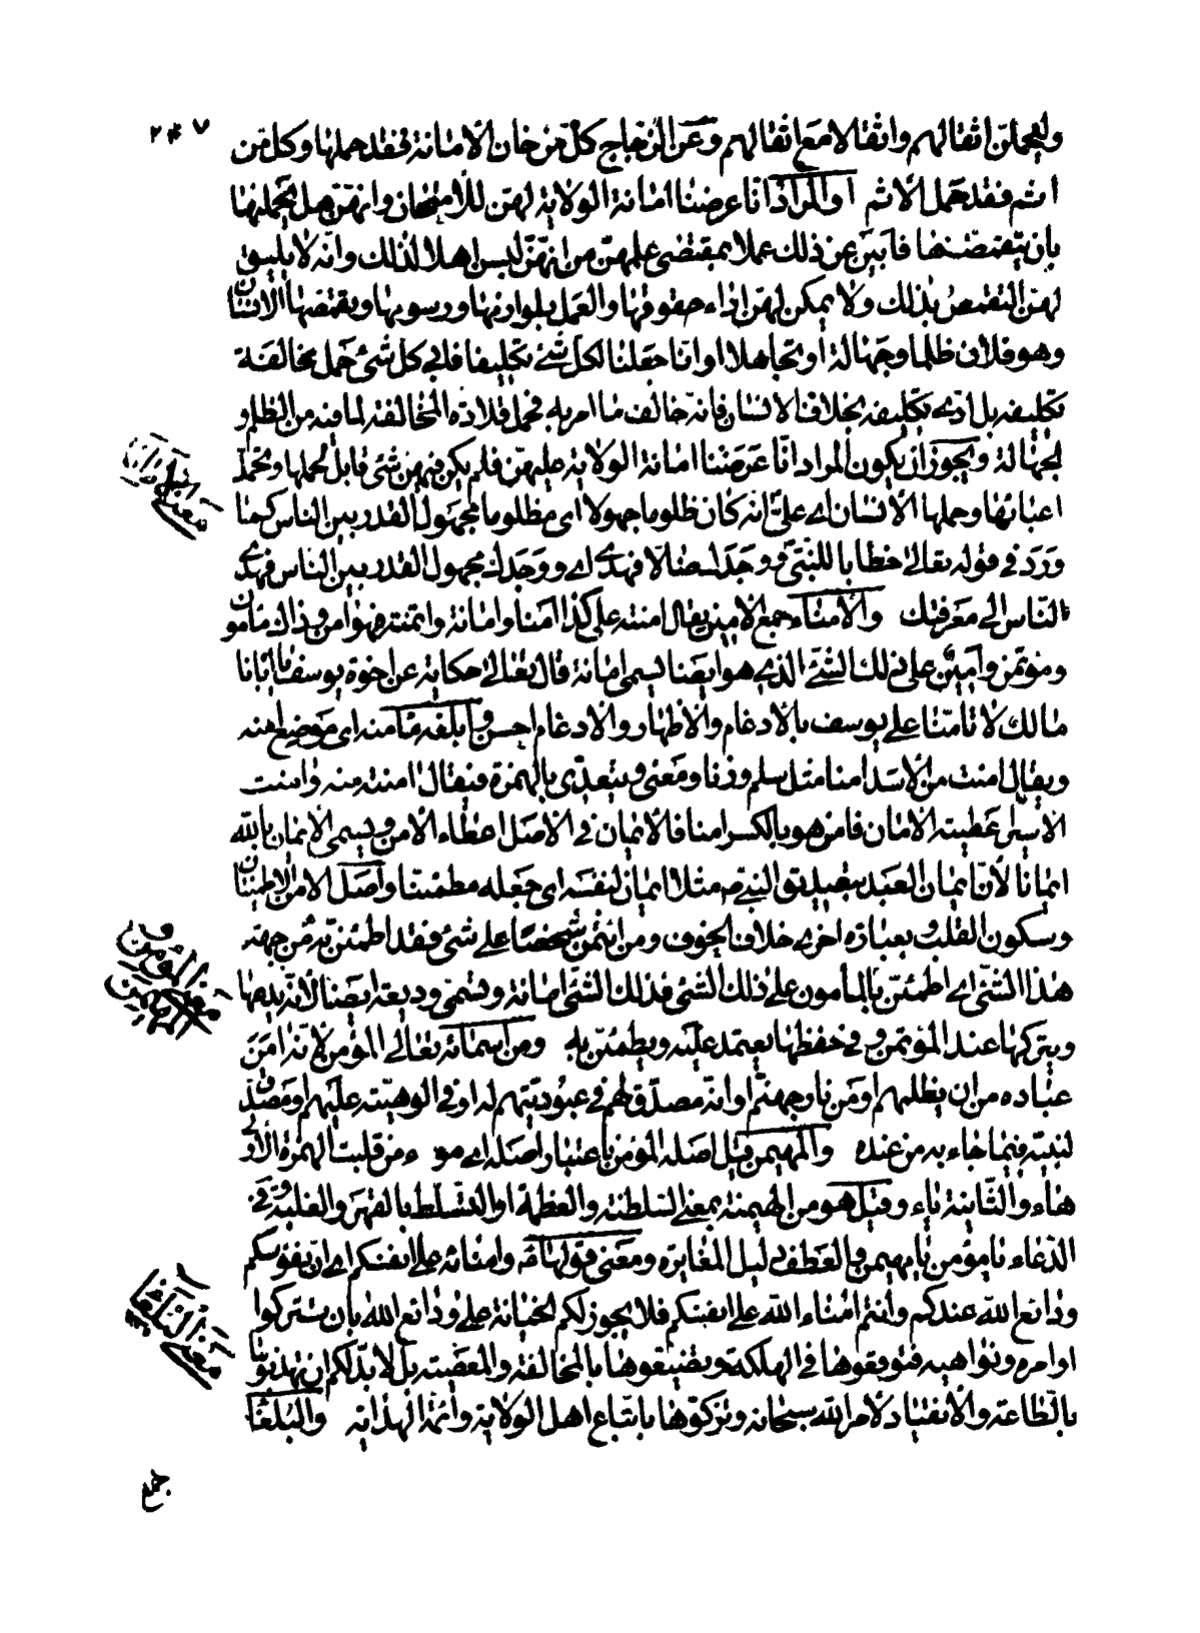 وليحملن اثقالهم واثقالا مع اثقالهم وعن الزجاج كل من خان الأمانة فقد حملها وكل من
اثم فقد حمل الاثم او المراد انا عرضنا امانة الولاية لهن للامتحان وانهن هل يحملنها
بان يتقمصنها فابين عن ذلك عملا بمقتضى علمهن من انهن ليس اهلا لذلك وانه لا يليق
لهن التقمص بذلك ولا يمكن لهن اداء حقوقها والعمل بلوازمها ورسومها وتقمصها الانسان
وهو فلان ظلما وجهالة او تجاهلا او انا جعلنا لكل شئ تكليفا فابى كل شئ حمل مخالفة
تكليفه بل ادى تكليفه بخلاف الانسان فانه خالف ما امر به فحمل قلادة المخالفة لما فيه من الظلم و
الجهالة ويجوز ان يكون المراد انا عرضنا امانة الولاية عليهن فلم يكن فيهن شئ قابل لحملها وتحمل
اعبائها وحملها الانسان اى على انه كان ظلوما جهولا اى مظلوما مجهول القدر بين الناس كما
ورد في قوله تعالى خطابا للنبي ووجدك ضالا فهدى اى ووجدك مجهول القدر بين الناس فهدى
الناس الى معرفتك والامناء جمع الامين يقال امنته على كذا امنا وامانة وائتمنته فهو امن وذاك مامون
ومؤتمن وامين على ذلك الشئ الذي هو ايضا يسمى امانة قال تعالى حكاية عن اخوة يوسف يا ابانا
مالك لا تامنا على يوسف بالادغام والاظهار والادغام احسن وابلغه مامنه اى موضع امنه
ويقال امنت من الاسد امنا مثل سلم وزنا ومعنى ويتعدى بالهمزة فيقال امنته منه وامنت
الاسير اعطيته الامان فامن هو بالكسر امنا فالايمان في الاصل اعطاء الامن ويسمى الايمان بالله
ايمانا لان ايمان العبد بتصديق النبي ص مثلا ايمان لنفسه اى جعله مطمئنا واصل الامن الاطمينان
وسكون القلب وبعبارة اخرى خلاف الخوف ومن ائتمن شخصا على شئ فقد اطمئن به من جهة
هذا الشئ اى اطمئن بالمأمون على ذلك الشئ فذلك الشئ امانة وتسمى وديعة ايضا لانه يدعها
ويتركها عند المؤتمن وفي حفظها يعتمد عليه ويطمئن به ومن اسمائه تعالى المؤمن لانه امن
عباده من ان يظلمهم او من نار جهنم او انه مصدق لهم في عبوديتهم له او في الوهيته عليهم ومصدق
لنبيه فيما جاء به من عنده والمهيمن قيل اصله المؤمن باعتبار اصله اى مو ءمن قلبت الهمزة الاولى
هاء والثانية ياء وقيل هو من الهيمنة بمعنى السلطنة والعظمة او التسلط بالقهر والغلبة وفي
الدعاء يا مؤمن يا مهيمن والعطف دليل المغايرة ومعنى قولها وامنائه على انفسكم اى ان نفوسكم
ودائع الله عندكم وانتم امناء الله على انفسكم فلا يجوز لكم الخيانة على ودائع الله بان تتركوا
اوامره ونواهيه فتوقعوها في الهلكة وتضيعوها بالمخالفة والمعصية بل لابد لكم ان تهذبوها
بالطاعة والانقياد لامر الله سبحانه وتزكوها باتباع اهل الولاية وائمة الهداية والبلغاء
معنى المؤمن و
المهيمن
معنى البلغاء
جمع